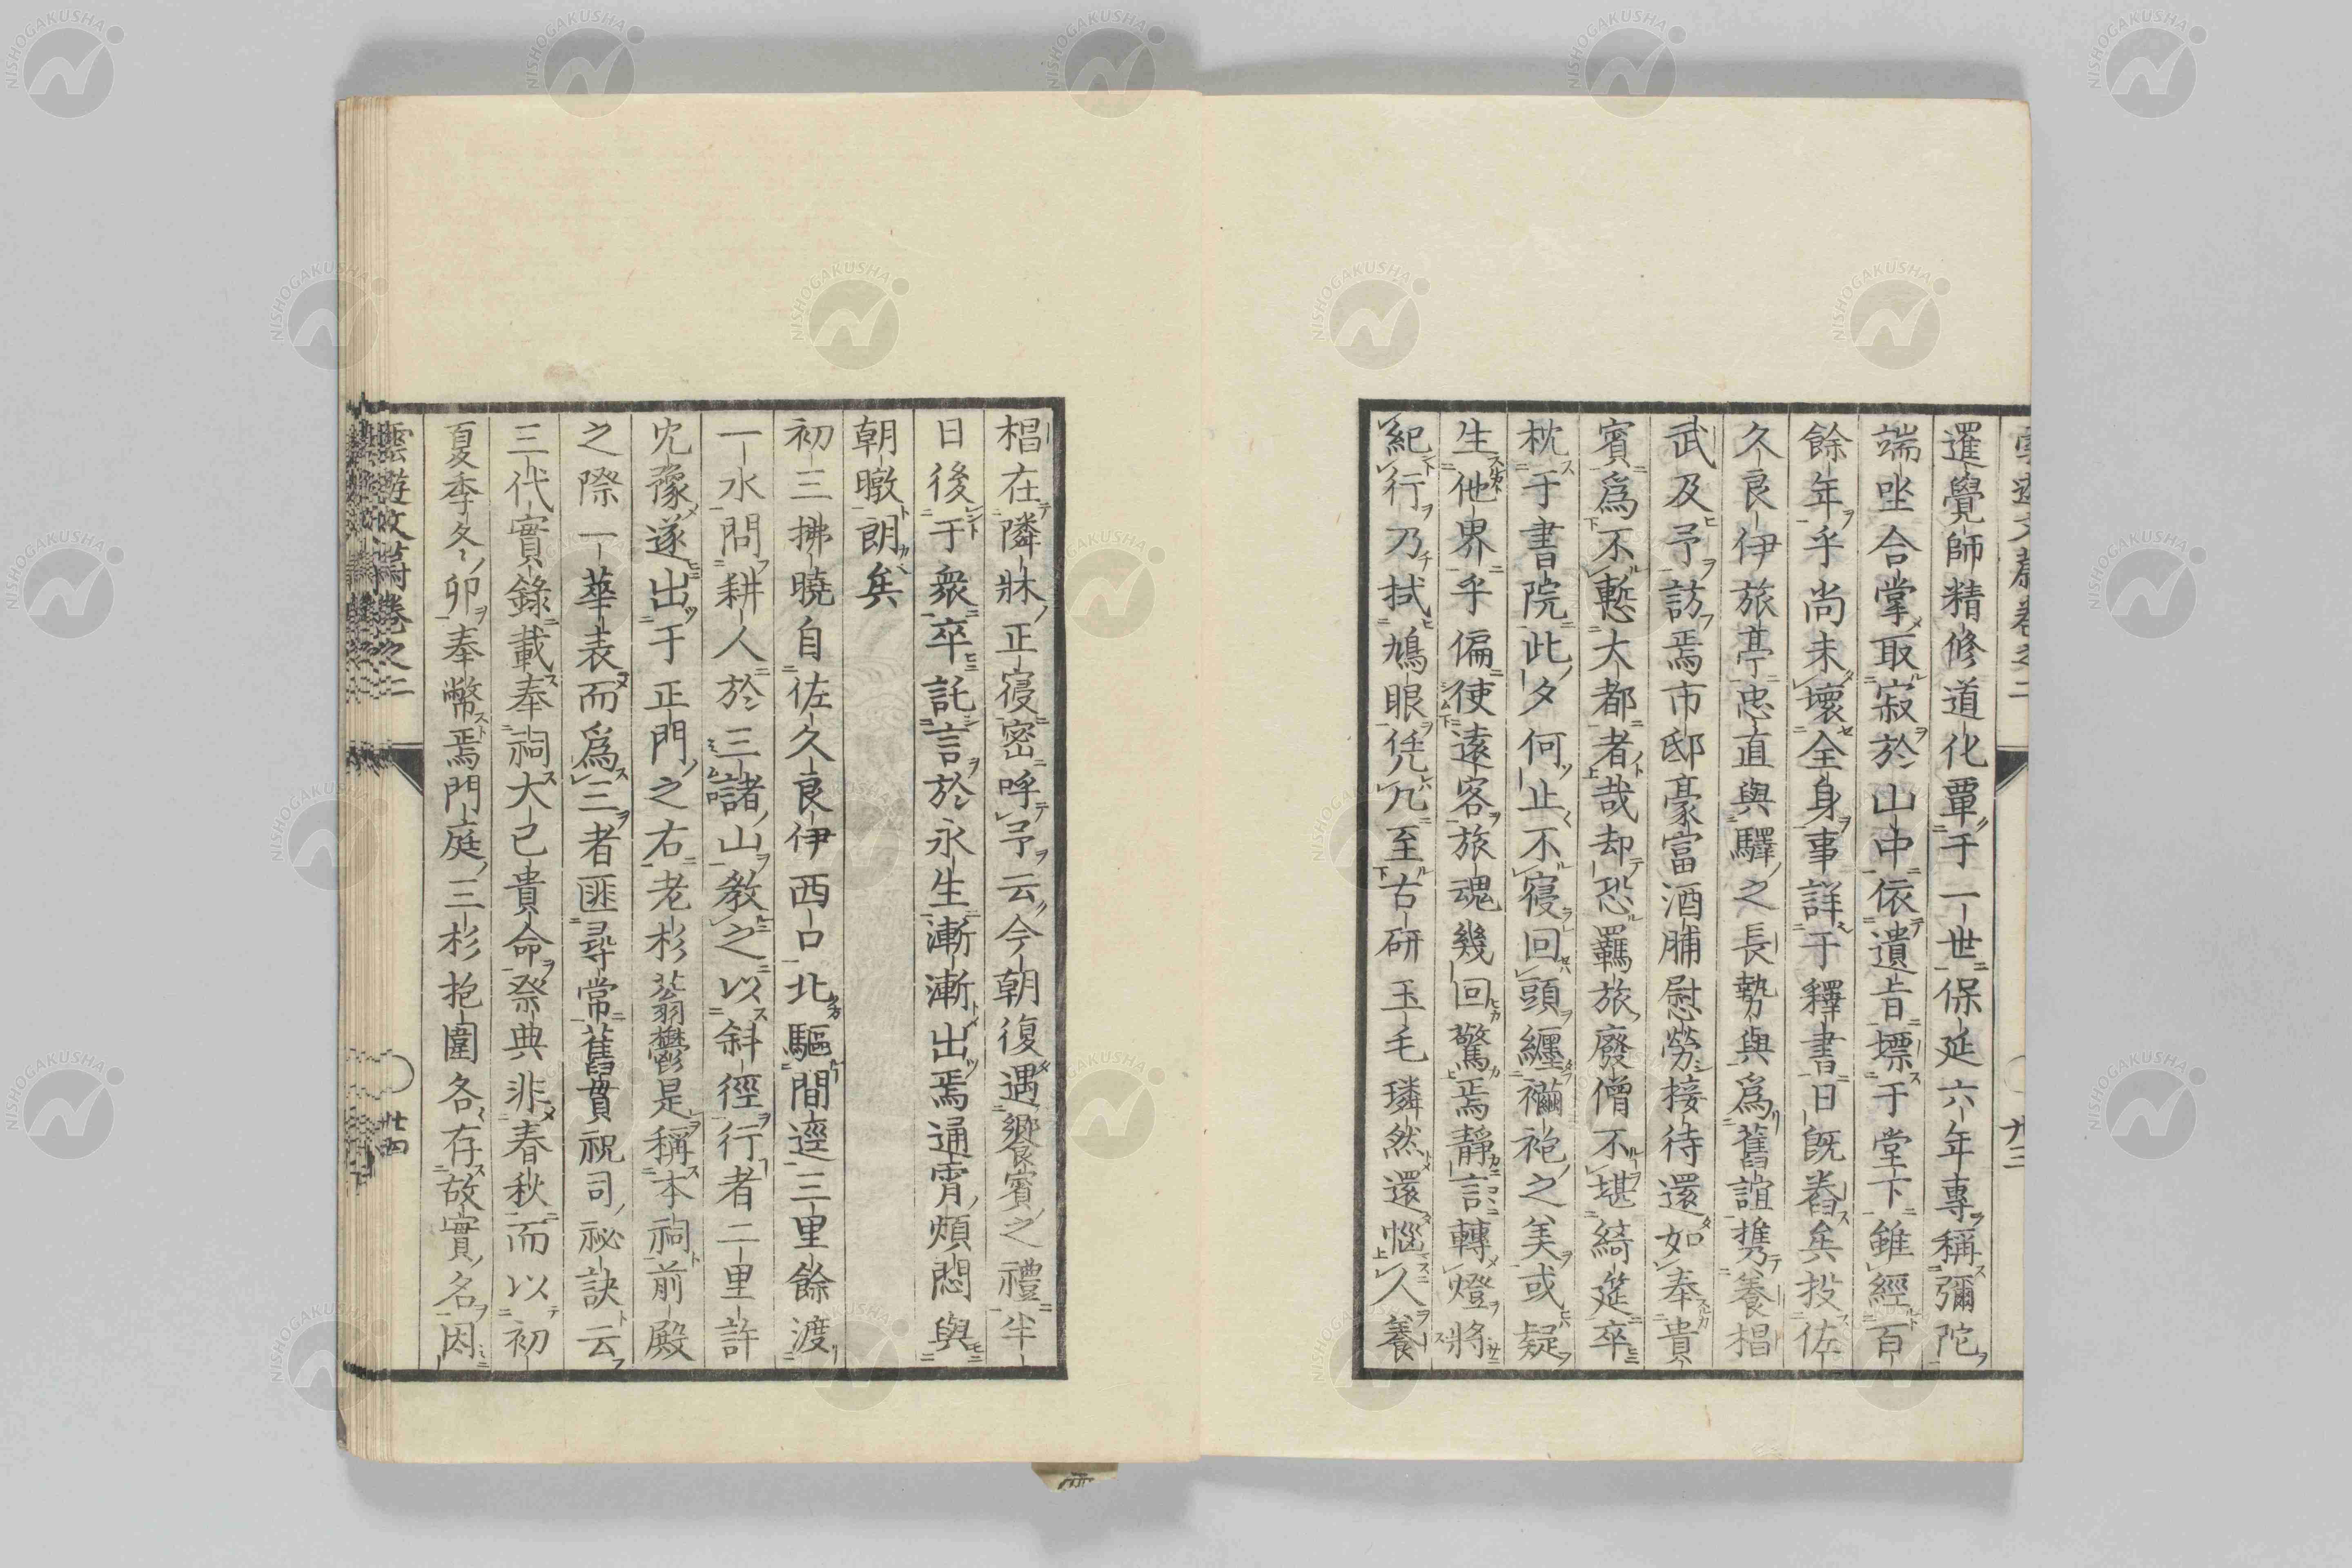 暹覺師精修道化覃于一世保延六年專稱彌陀
端坐合掌取寂於山中依遺旨墂于堂下雖經百
餘年乎尚未壞全身事詳于釋書日既舂矣投佐
久良伊旅亭忠直與驛之長勢與爲舊誼携養椙
武及予訪焉市邸豪富酒脯慰勞接待還如奉貴
賓爲不慙大都者哉却恐羈旅廢僧不堪綺筵卒
枕于書院此夕何止不寢回頭纏襺袍之美或疑
生他界乎偏使遠客旅魂幾回驚焉靜言轉燈將
紀行乃拭鳩眼凭几至古研玉毛璘然還惱人養
椙在隣牀正寢密呼予云今朝復遇饗賓之禮半
日後于衆卒託言於永生漸漸出焉通宵煩悶與
朝暾朗矣
初三拂曉自佐久良伊西口北驅間逕三里餘渡
一水問耕人於三諸山教之以斜徑行者二里許
冘豫遂出于正門之右老杉蓊鬱是稱本祠前殿
之際一華表而爲三者匪尋常舊貫祝司秘訣云
三代實錄載奉祠大已貴命祭典非春秋而以初
夏季冬卯奉幣焉門庭三杉抱圍各存故實名因
雲遊文蔚卷之二
廿四
廿三
NISHOGAKUSHA